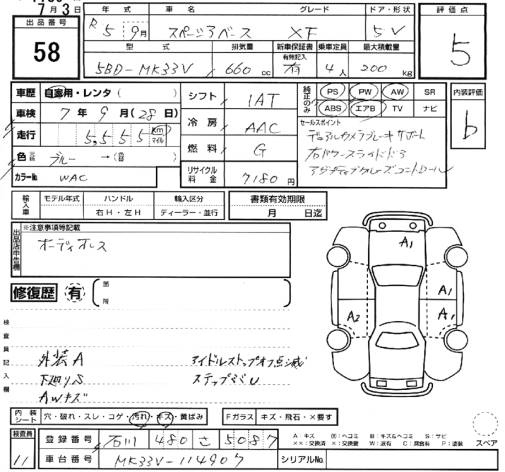 7月3日
出品番号 58
年式 R5年9月
車名 スペーシアベース
グレード XF
ドア・形状 5V
評価点 5
型式 5BD-MK33V
排気量 660cc
新車保証書 有無記入 有
乗車定員 4人
最大積載量 200kg
車歴 自家用・レンタ( )
車検 7年9月(28日)
走行 5,555 km マイル
色 ブルー → ( )
カラーNo WAC
シフト IAT
冷房 AAC
燃料 G
リサイクル料金 7180円
純正のみ PS PW AW SR
ABS エアB TV ナビ
内装評価 b
セールスポイント
デュアルカメラブレーキサポート
右パワースライドドア
アダプティブクルーズコントロール
輸入車 モデル年式 ハンドル 右H・左H 輸入区分 ディーラー・並行
書類有効期限 月 日迄
※注意事項等記載
オーディオレス
修復歴 有 箇所
A1
A1
A2 A1
検査員記入欄
外装A
下廻りS
AWキズ
アイドルストップオフ点滅
ステップミU
内装シート 穴・破れ・スレ・コゲ・汚れ・キズ・黄ばみ
Fガラス キズ・飛石・×要す
検査員 11
登録番号 石川 480 さ 5087
車台番号 MK33V-114907
シリアルNo
スペア